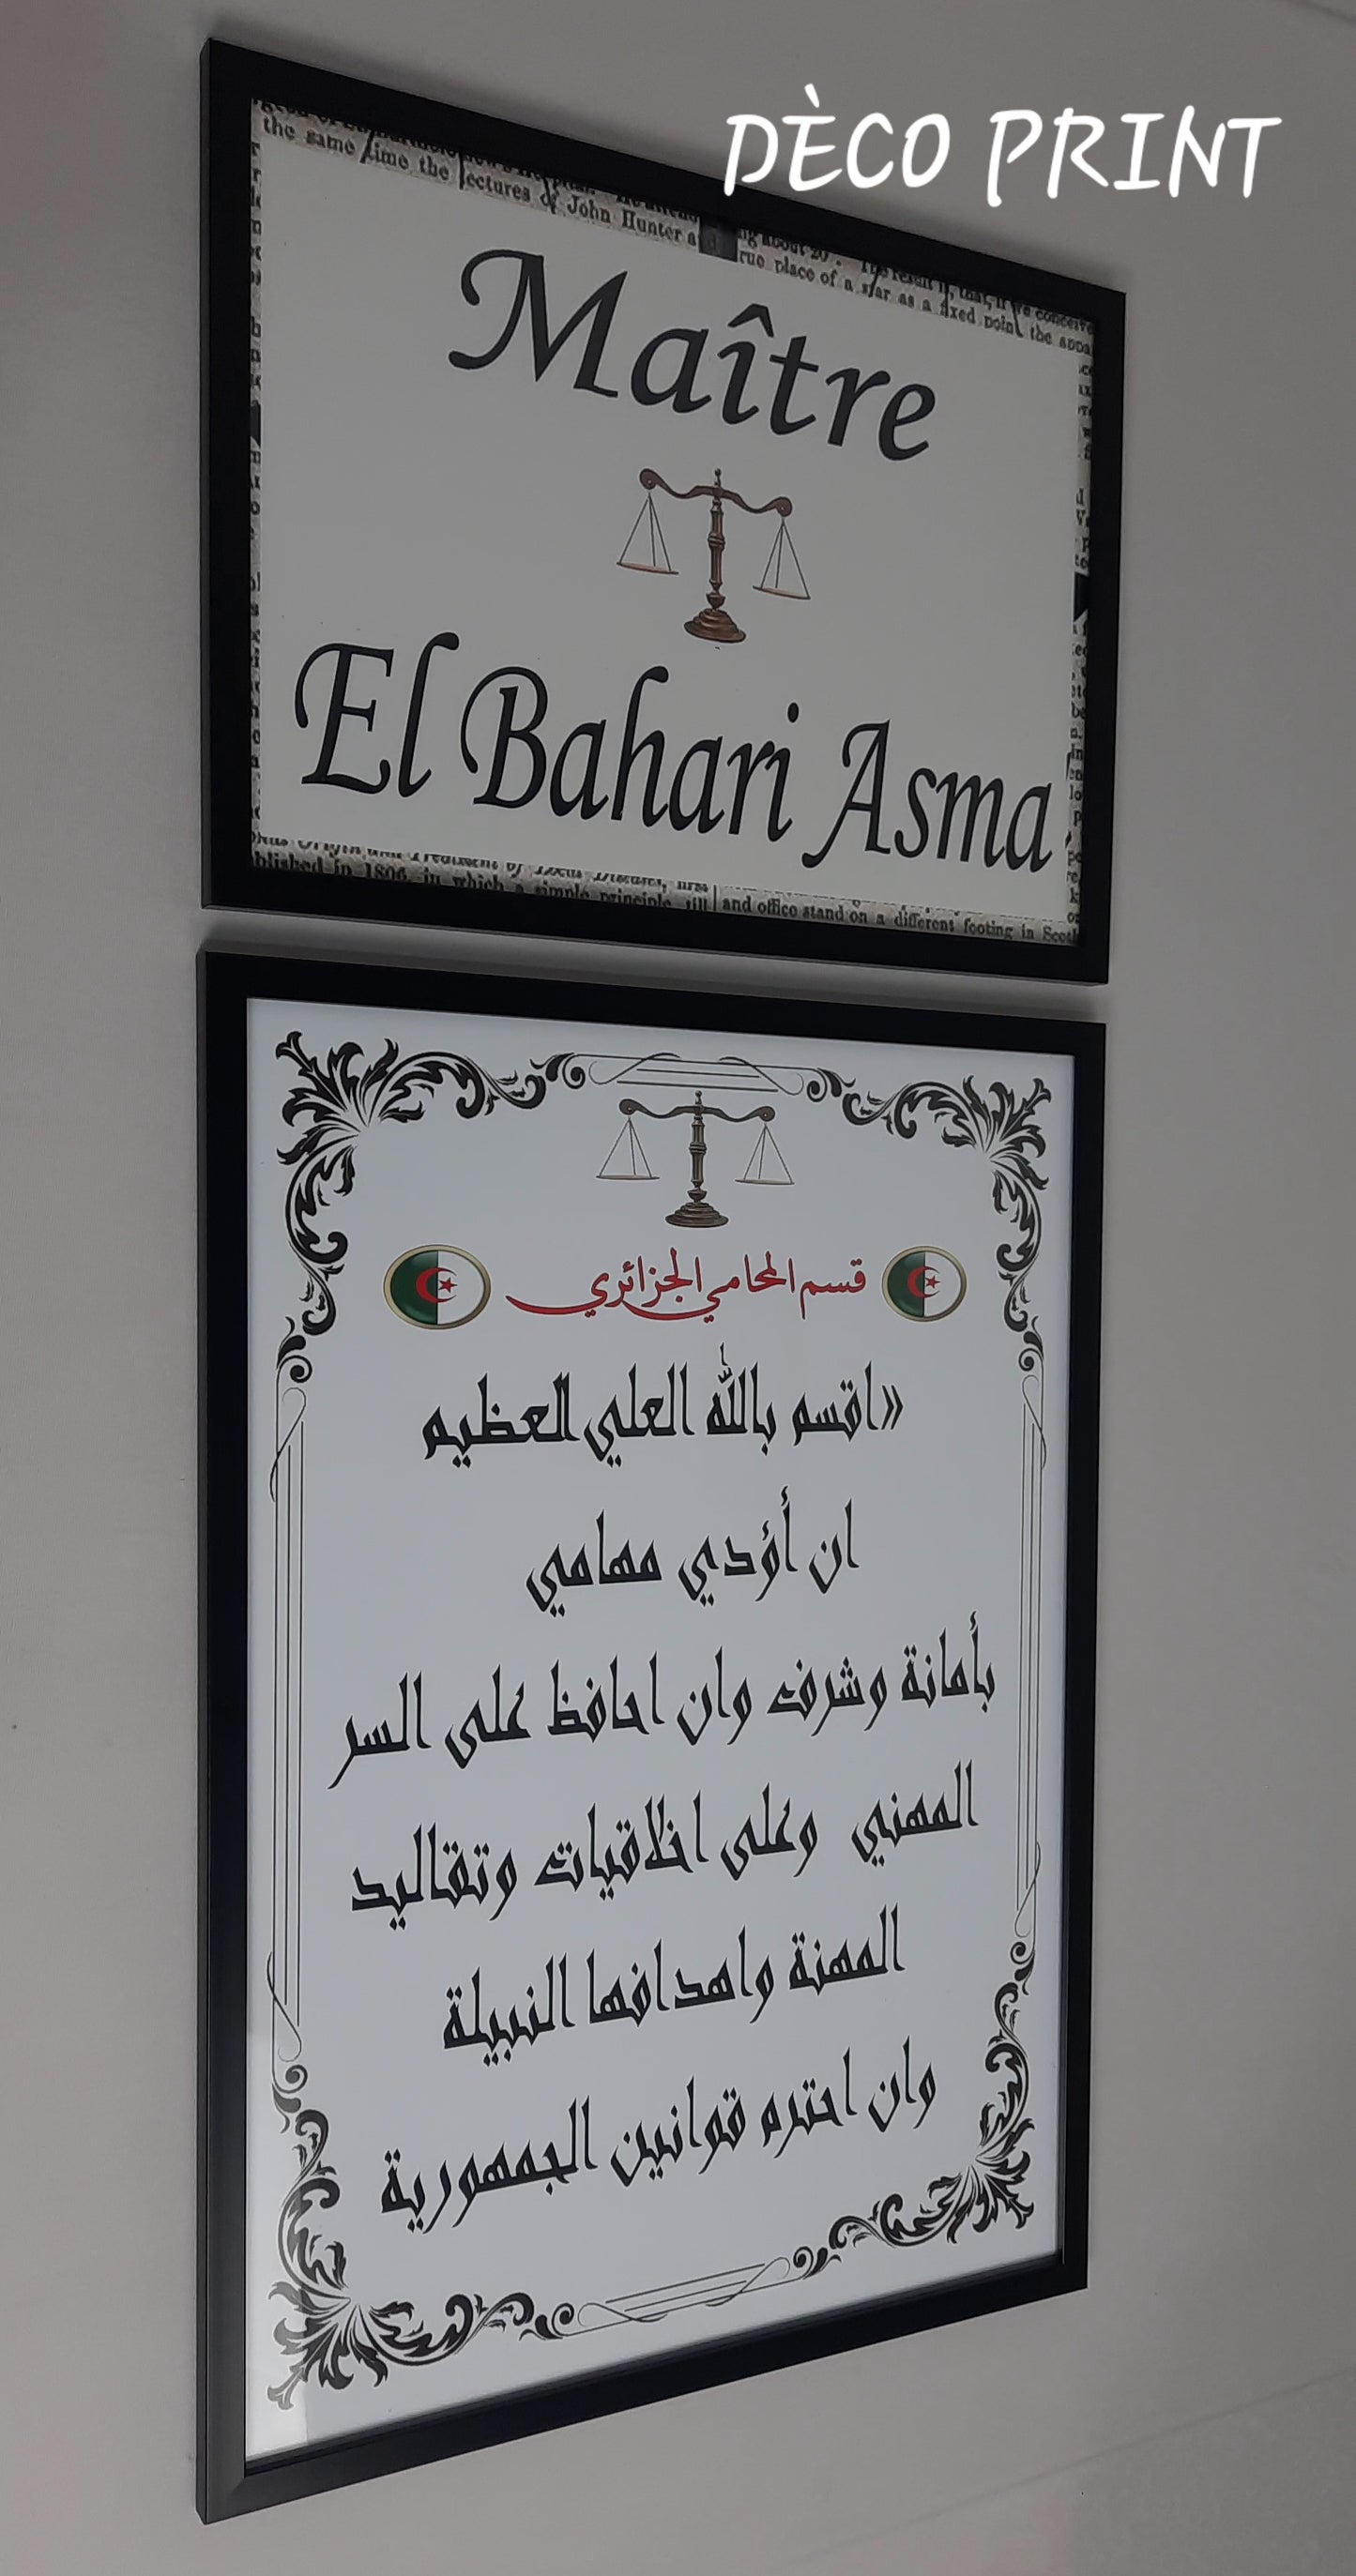 DÈCO PRINT
the same time the lectures of John Hunter
true place of a star as a fixed point the
Maître
El Bahari Asma
Origin and Treatment of Local Diseases, first
blished in 1806, in which a simple principle till
and office stand on a different footing in Scotl
قسم المحامي الجزائري
«اقسم بالله العلي العظيم
ان أؤدي مهامي
بأمانة وشرف وان احافظ على السر
المهني وعلى اخلاقيات وتقاليد
المهنة واهدافها النبيلة
وان احترم قوانين الجمهورية